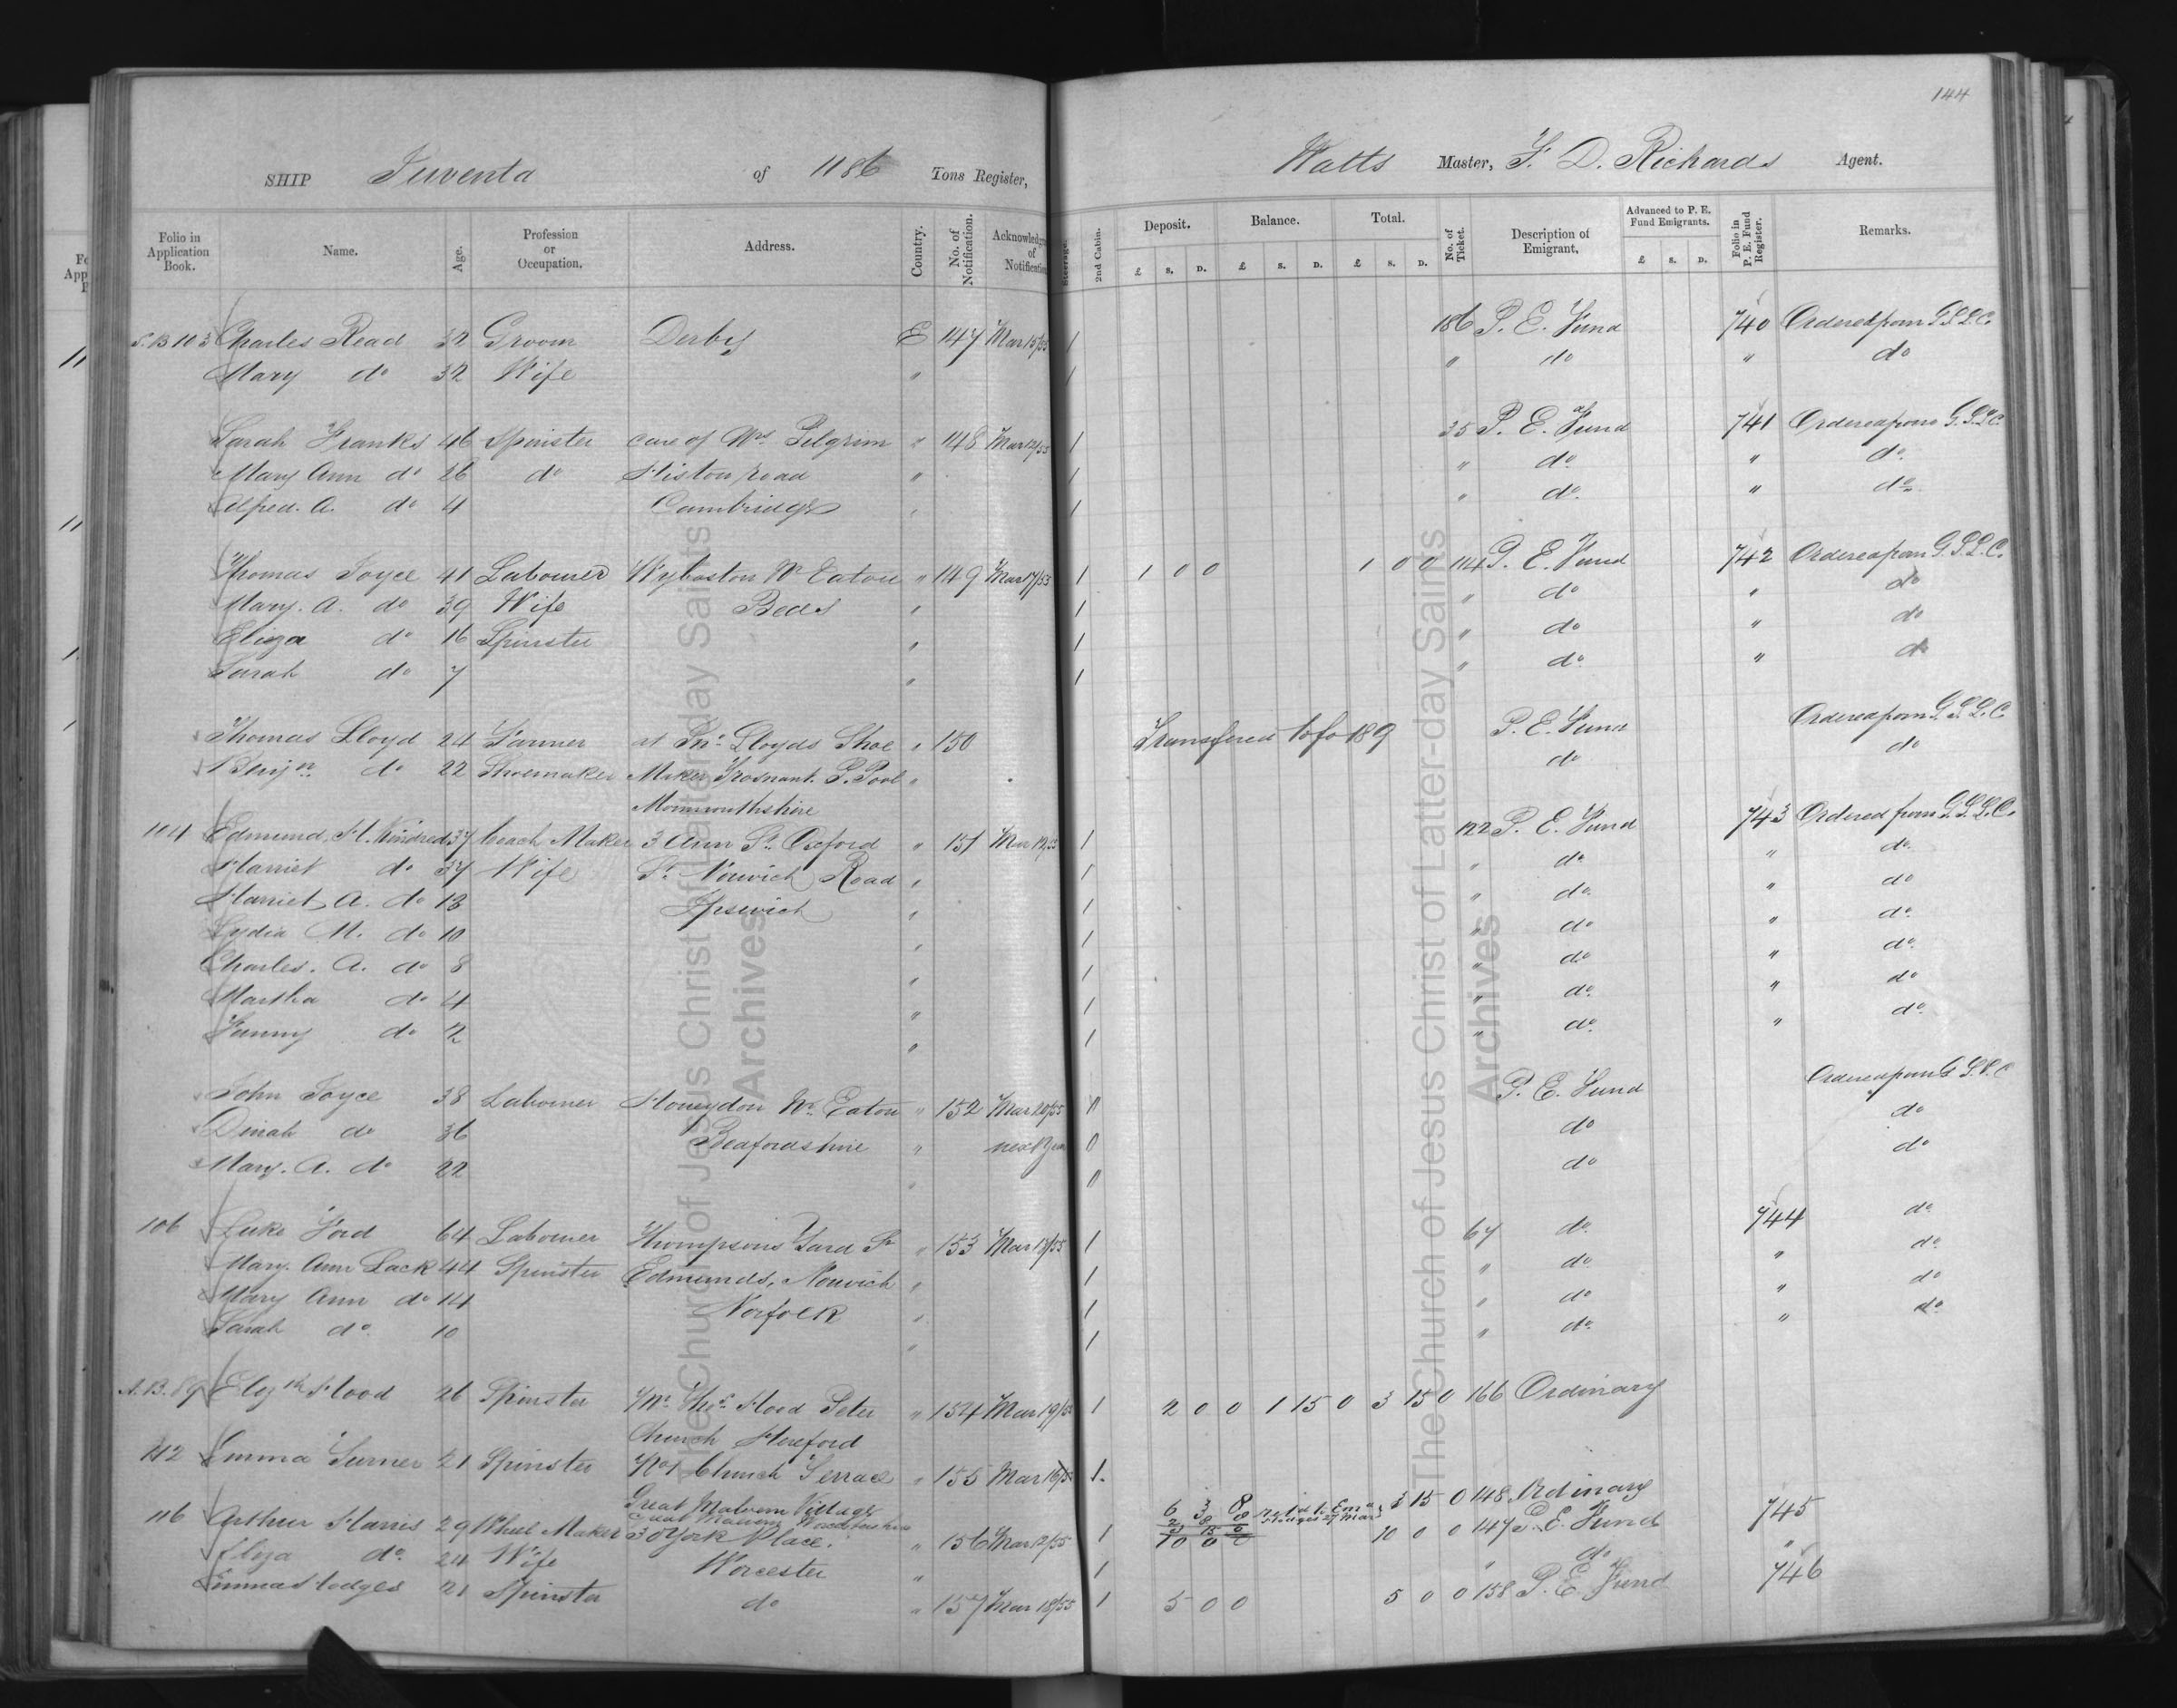 144
SHIP Juventa of 1186 Tons Register, Watts Master, F. D. Richards Agent.
Folio in Application Book. Name. Age. Profession or Occupation. Address. Country. No. of Notification. Acknowledgm of Notification Steerage. 2nd Cabin. Deposit. £ S. D. Balance. £ S. D. Total. £ S. D. No. of Ticket. Description of Emigrant. Advanced to P. E. Fund Emigrants. £ S. D. Folio in P. E. Fund Register. Remarks.
S.B 103 Charles Read 32 Groom Derby E 147 Mar 15/55 1 186 P. E. Fund 740 Ordered from G.S.L.C.
Mary do 32 Wife " 1 " do " do
Sarah Franks 46 Spinster care of Mrs Pilgrim " 148 Mar 12/55 1 35 P. E. Fund 741 Ordered from G.S.L.C.
Mary Ann do 26 do Histon Road " 1 " do " do
Alfred. A. do 4 Cambridge " 1 " do " do
Thomas Joyce 41 Labourer Wyboston Nr Eaton " 149 Mar 17/55 1 1 0 0 1 0 0 114 P. E. Fund 742 Ordered from G.S.L.C.
Mary. A. do 39 Wife Beds " 1 " do " do
Eliza do 16 Spinster " 1 " do " do
Sarah do 7 " 1 " do " do
Thomas Lloyd 24 Farmer at Mr. Lloyds Shoe " 150 Transfered to fo 189 P. E. Fund Ordered from G.S.L.C.
Benjn do 22 Shoemaker Maker Trosnant. P. Pool " do do
Monmouthshire
104 Edmund. H. Kindred 37 Coach Maker 3 Ann St. Oxford " 151 Mar 19/55 1 122 P. E. Fund 743 Ordered from G.S.L.C.
Harriet do 37 Wife St. Norwich Road " 1 " do " do
Harriet A. do 13 Ipswich " 1 " do " do
Lydia M. do 10 " 1 " do " do
Charles. A. do 8 " 1 " do " do
Martha do 4 " 1 " do " do
Fanny do 2 " 1 " do " do
John Joyce 38 Labourer Honeydon Nr. Eaton " 152 Mar 20/55 0 P. E. Fund Ordered from G.S.L.C
Dinah do 36 Bedfordshire " next Year 0 do do
Mary. A. do 22 " 0 do do
106 Luke Ford 64 Labourer Thompsons Yard St " 153 Mar 13/55 1 67 do 744 do
Mary. Ann Lack 44 Spinster Edmunds, Norwich " 1 " do " do
Mary Ann do 14 Norfolk " 1 " do " do
Sarah do 10 " 1 " do " do
A.B. 89 Elizth Hood 26 Spinster Mr. Thos. Hood Peter " 154 Mar 19/55 1 2 0 0 1 15 0 3 15 0 166 Ordinary
Church Hereford
112 Emma Turner 21 Spinster No 1 Church Terrace " 155 Mar 16/55 1. 3 15 0 148 Ordinary
Great Malvern Village
Great Malvern Worcestershire
116 Arthur Harris 29 Wheel Maker 30 York Place. " 156 Mar 12/55 1 10 0 0 10 0 0 147 P. E. Fund 745
Eliza do 24 Wife Worcester " 1 " do "
Emma Hodges 21 Spinster do " 157 Mar 18/55 1 5 0 0 5 0 0 158 P. E. Fund 746
The Church of Jesus Christ of Latter-day Saints
Archives
The Church of Jesus Christ of Latter-day Saints
Archives